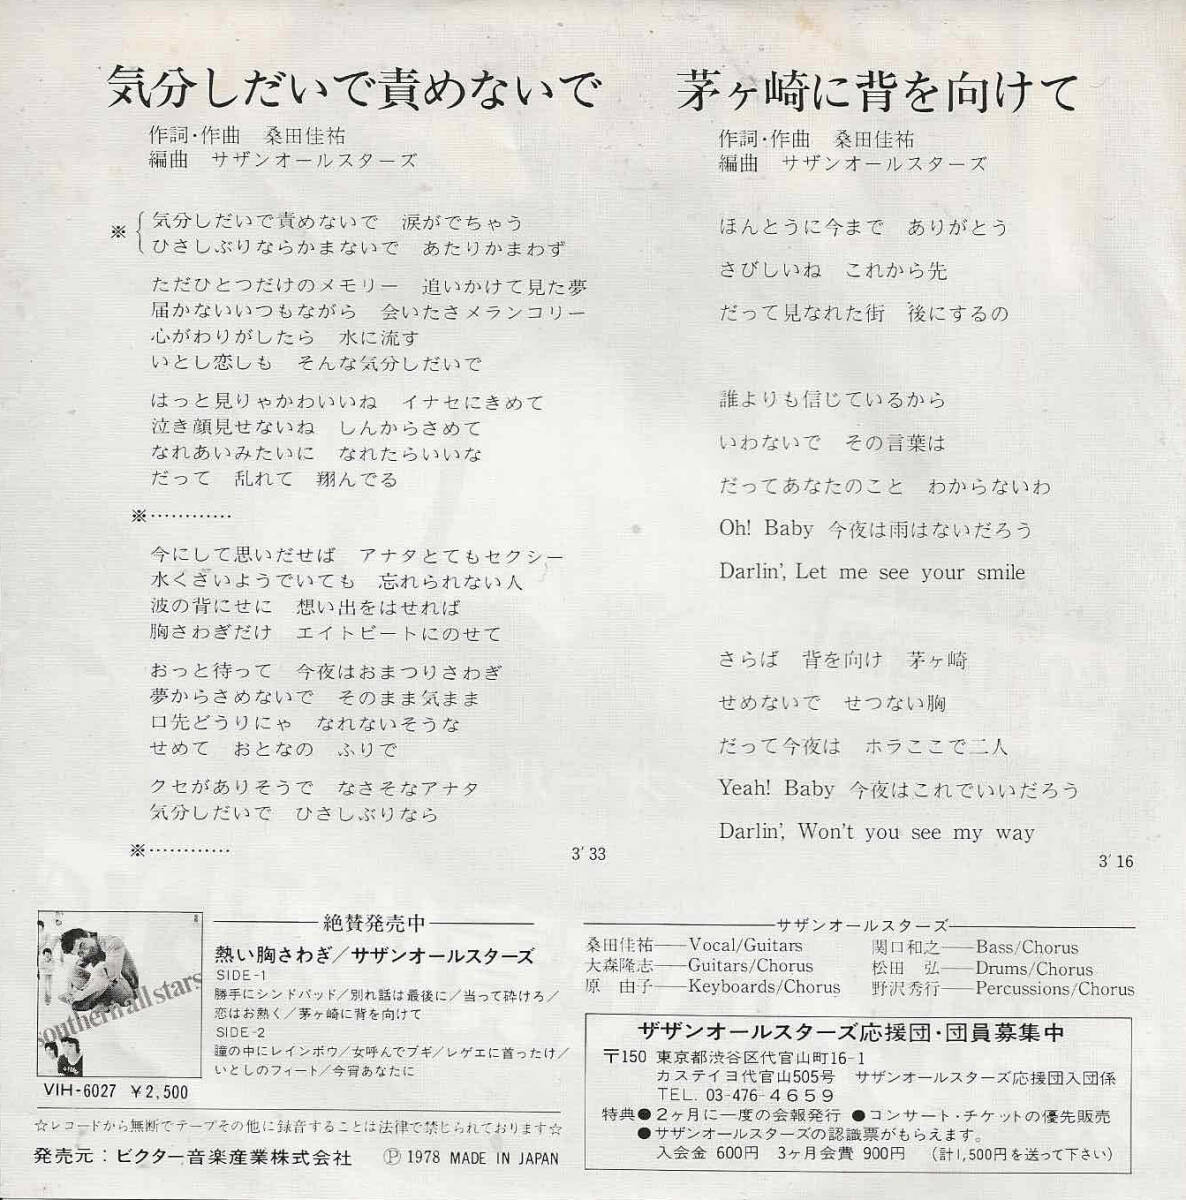 気分しだいで責めないで
作詞・作曲 桑田佳祐
編曲 サザンオールスターズ
※ 気分しだいで責めないで 涙がでちゃう
ひさしぶりならかまないで あたりかまわず
ただひとつだけのメモリー 追いかけて見た夢
届かないいつもながら 会いたさメランコリー
心がわりがしたら 水に流す
いとし恋しも そんな気分しだいで
はっと見りゃかわいいね イナセにきめて
泣き顔見せないね しんからさめて
なれあいみたいに なれたらいいな
だって 乱れて 翔んでる
※…………
今にして思いだせば アナタとてもセクシー
水くさいようでいても 忘れられない人
波の背にせに 想い出をはせれば
胸さわぎだけ エイトビートにのせて
おっと待って 今夜はおまつりさわぎ
夢からさめないで そのまま気まま
口先どうりにゃ なれないそうな
せめて おとなの ふりで
クセがありそうで なさそなアナタ
気分しだいで ひさしぶりなら
※…………
3′33
茅ヶ崎に背を向けて
作詞・作曲 桑田佳祐
編曲 サザンオールスターズ
ほんとうに今まで ありがとう
さびしいね これから先
だって見なれた街 後にするの
誰よりも信じているから
いわないで その言葉は
だってあなたのこと わからないわ
Oh! Baby 今夜は雨はないだろう
Darlin', Let me see your smile
さらば 背を向け 茅ヶ崎
せめないで せつない胸
だって今夜は ホラここで二人
Yeah! Baby 今夜はこれでいいだろう
Darlin', Won't you see my way
3′16
southern all stars
VIH-6027 ¥2,500
絶賛発売中
熱い胸さわぎ/サザンオールスターズ
SIDE-1
勝手にシンドバッド/別れ話は最後に/当って砕けろ/
恋はお熱く/茅ヶ崎に背を向けて
SIDE-2
瞳の中にレインボウ/女呼んでブギ/レゲエに首ったけ/
いとしのフィート/今宵あなたに
☆レコードから無断でテープその他に録音することは法律で禁じられております☆
発売元:ビクター音楽産業株式会社 Ⓟ 1978 MADE IN JAPAN
サザンオールスターズ
桑田佳祐――Vocal/Guitars
大森隆志――Guitars/Chorus
原 由子――Keyboards/Chorus
関口和之――Bass/Chorus
松田 弘――Drums/Chorus
野沢秀行――Percussions/Chorus
サザンオールスターズ応援団・団員募集中
〒150 東京都渋谷区代官山町16-1
カステイヨ代官山505号 サザンオールスターズ応援団入団係
TEL. 03-476-4659
特典●2ヶ月に一度の会報発行 ●コンサート・チケットの優先販売
●サザンオールスターズの認識票がもらえます。
入会金 600円 3ヶ月会費 900円 (計1,500円を送って下さい)